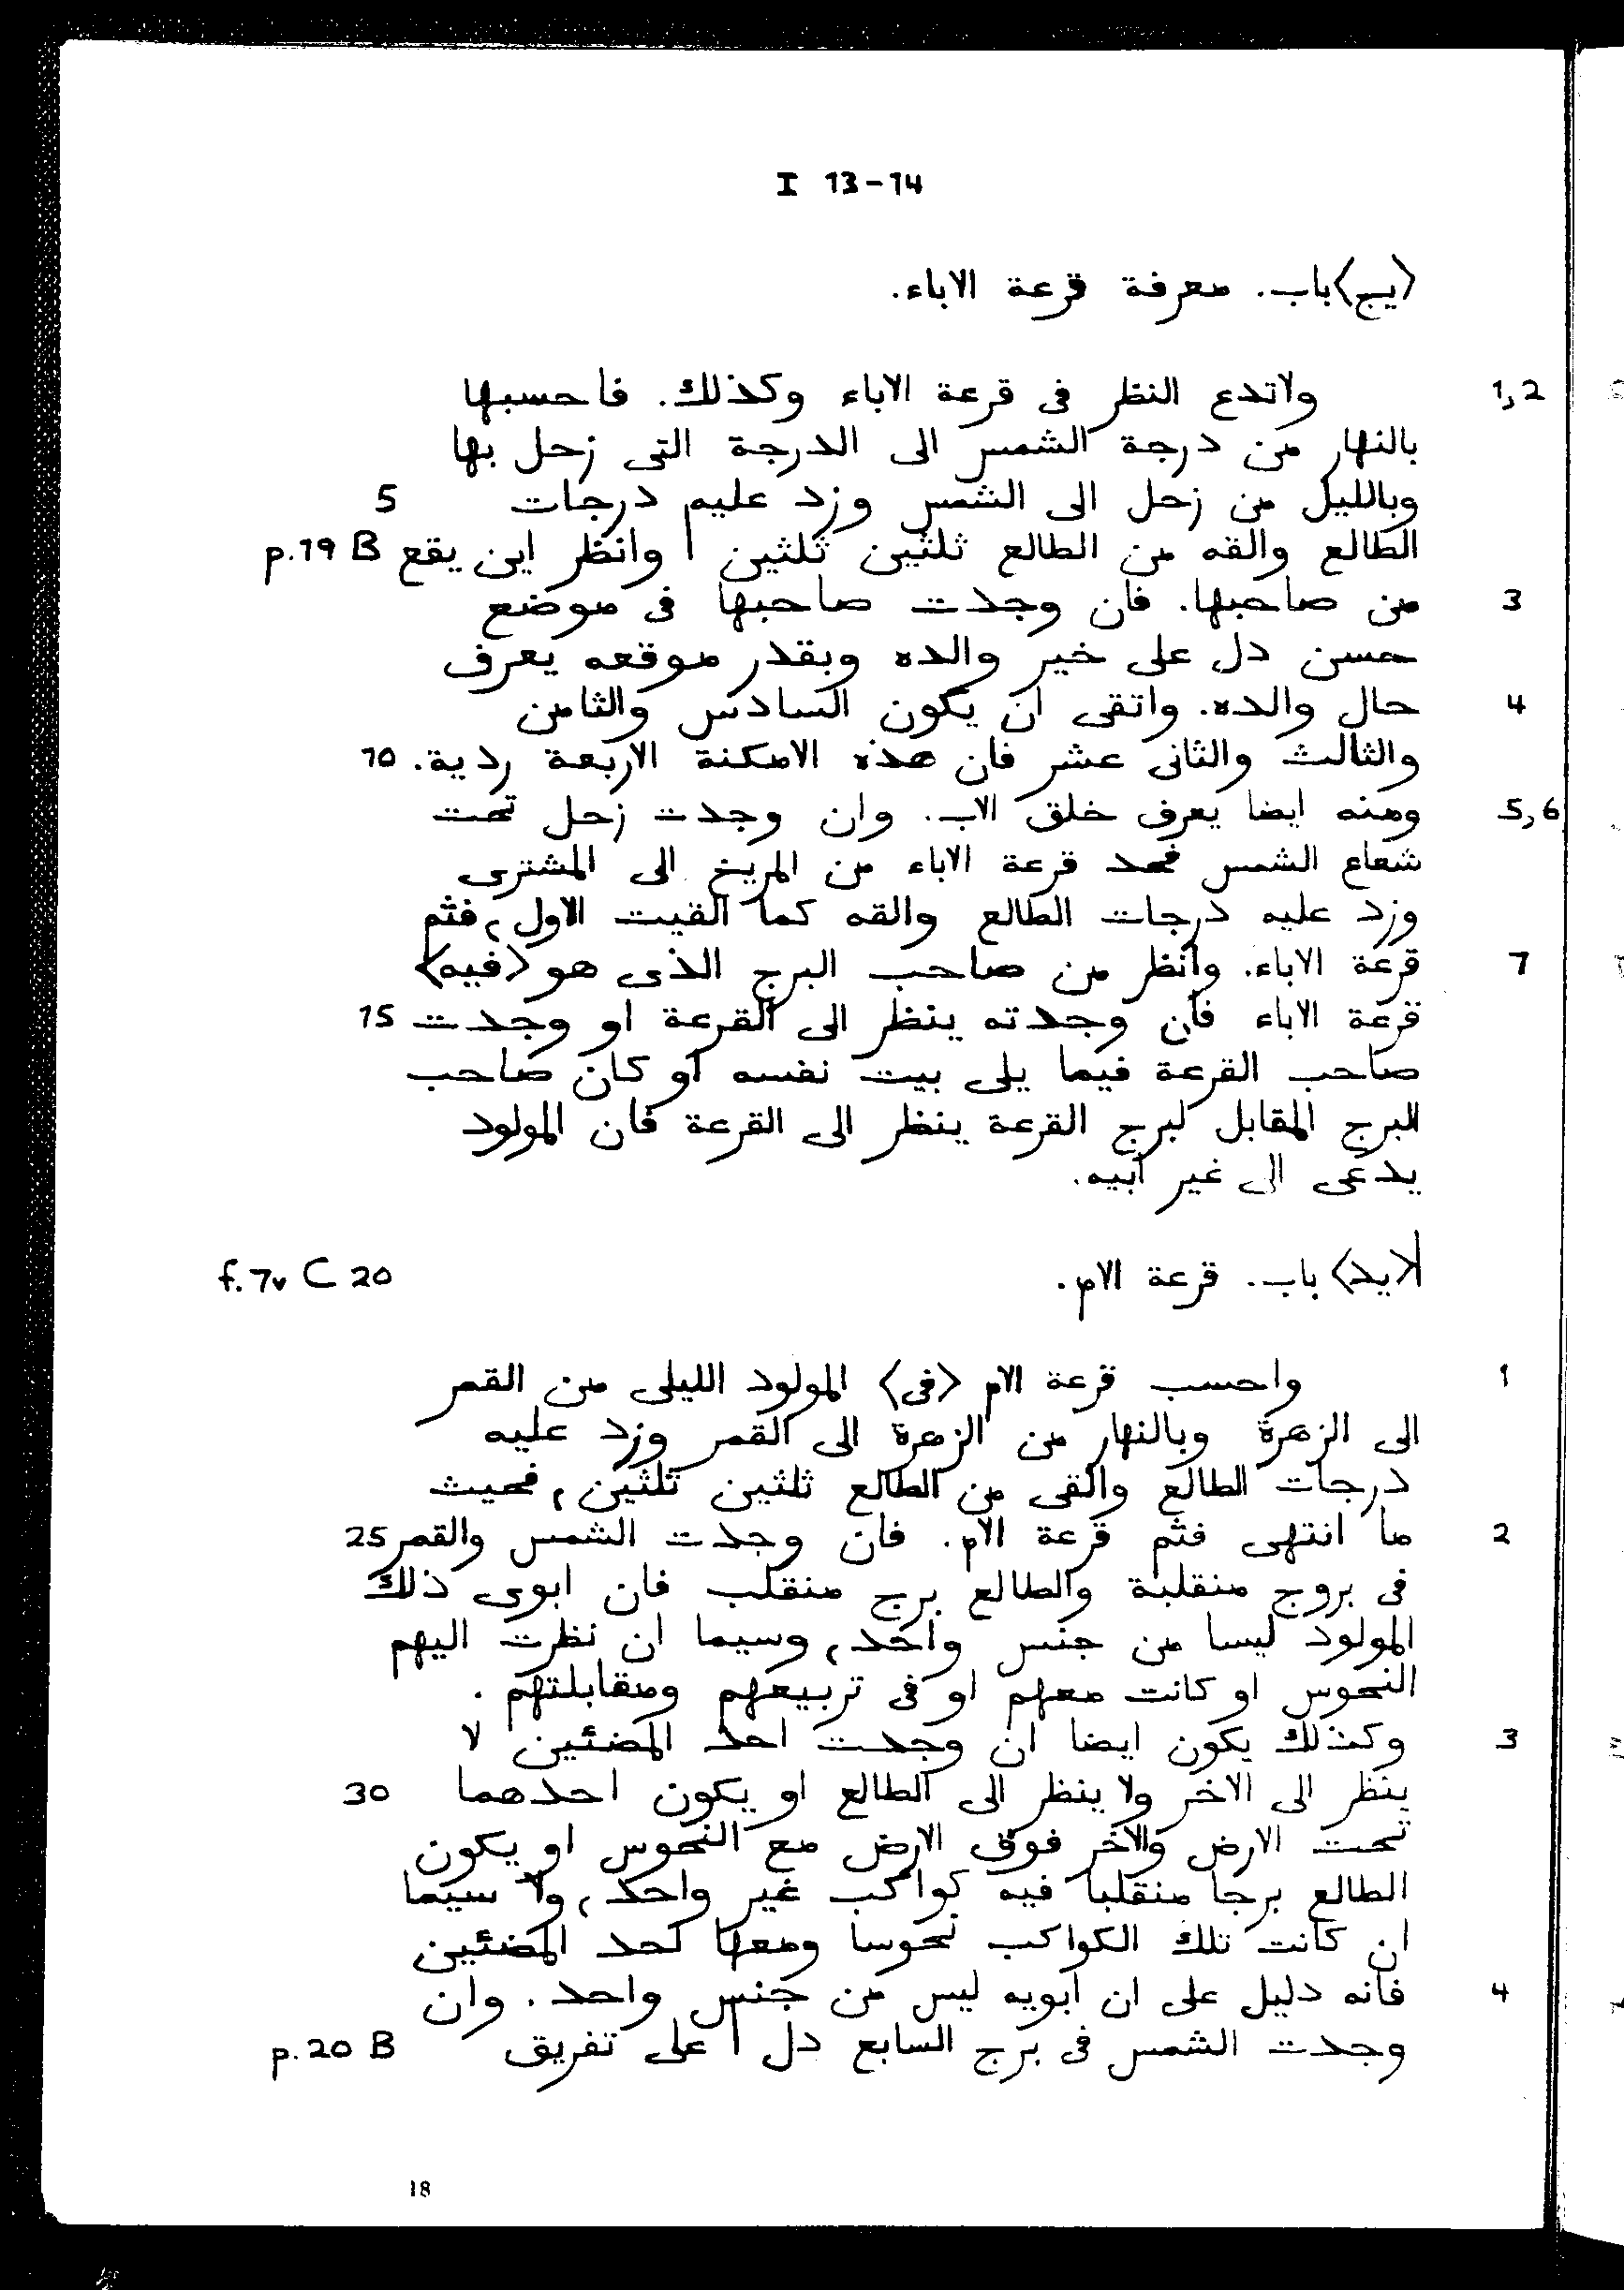 I 13-14
〈يج〉باب. معرفة قرعة الاباء.
1,2 ولاتدع النظر فى قرعة الاباء وكذلك. فاحسبها
بالنهار من درجة الشمس الى الدرجة التى زحل بها
وبالليل من زحل الى الشمس وزد عليم درجات 5
الطالع والقه من الطالع ثلثين ثلثين | وانظر اين يقع p.19 B
3 من صاحبها. فان وجدت صاحبها فى موضع
حسن دل على خير والده وبقدر موقعه يعرف
4 حال والده. واتقى ان يكون السادس والثامن
والثالث والثانى عشر فان هذه الامكنة الاربعة ردية. 10
5,6 ومنه ايضا يعرف خلق الاب. وان وجدت زحل تحت
شعاع الشمس فحد قرعة الاباء من المريخ الى المشترى
وزد عليه درجات الطالع والقه كما القيت الاول، فثم
7 قرعة الاباء. وانظر من صاحب البرج الذى هو 〈فيه〉
قرعة الاباء فان وجدته ينظر الى القرعة او وجدت 15
صاحب القرعة فيما يلى بيت نفسه او كان صاحب
البرج المقابل لبرج القرعة ينظر الى القرعة فان المولود
يدعى الى غير ابيه.
|〈يد〉 باب. قرعة الام. f.7v C 20
1 واحسب قرعة الام 〈فى〉 المولود الليلى من القمر
الى الزهرة وبالنهار من الزهرة الى القمر وزد عليه
درجات الطالع والقى من الطالع ثلثين ثلثين، فحيث
2 ما انتهى فثم قرعة الام. فان وجدت الشمس والقمر 25
فى بروج منقلبة والطالع برج منقلب فان ابوى ذلك
المولود ليسا من جنس واحد، وسيما ان نظرت اليهم
النحوس او كانت معهم او فى تربيعهم ومقابلتهم.
3 وكذلك يكون ايضا ان وجدت احد المضئين لا
ينظر الى الاخر ولا ينظر الى الطالع او يكون احدهما 30
تحت الارض والاخر فوق الارض مع النحوس او يكون
الطالع برجا منقلبا فيه كواكب غير واحد، ولا سيما
ان كانت تلك الكواكب نحوسا ومعها احد المضئيين
4 فانه دليل على ان ابويه ليس من جنس واحد. وان
وجدت الشمس فى برج السابع دل | على تفريق p.20 B
18